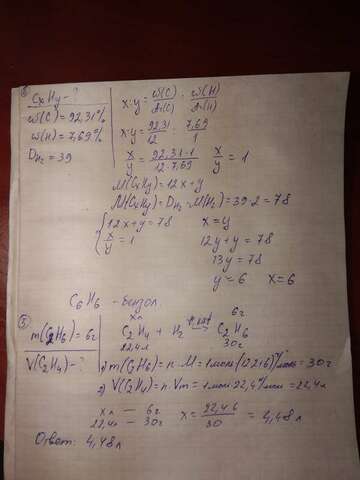 CxHy - ?
ω(C) = 92,31%
ω(H) = 7,69%
D H₂ = 39
x:y = ω(C)/Ar(C) : ω(H)/Ar(H)
x:y = 92,31/12 : 7,69/1
x/y = 92,31·1/12·7,69 x/y = 1
M(CxHy) = 12x+y
M(CxHy) = D H₂ · M(H₂) = 39·2 = 78
{12x+y = 78 x = y
x/y = 1 12y+y = 78
13y = 78
y = 6 x = 6
C₆H₆ - бензол
5
m(C₂H₆) = 6г
V(C₂H₄) - ?
xл 6г
C₂H₄ + H₂ → C₂H₆
22,4л 30г
1) m(C₂H₆) = n·M = 1моль·(12·2+6)г/моль = 30г
2) V(C₂H₄) = n·Vm = 1моль·22,4л/моль = 22,4л
xл — 6г
22,4л — 30г
x = 22,4·6/30 = 4,48л
Ответ: 4,48л